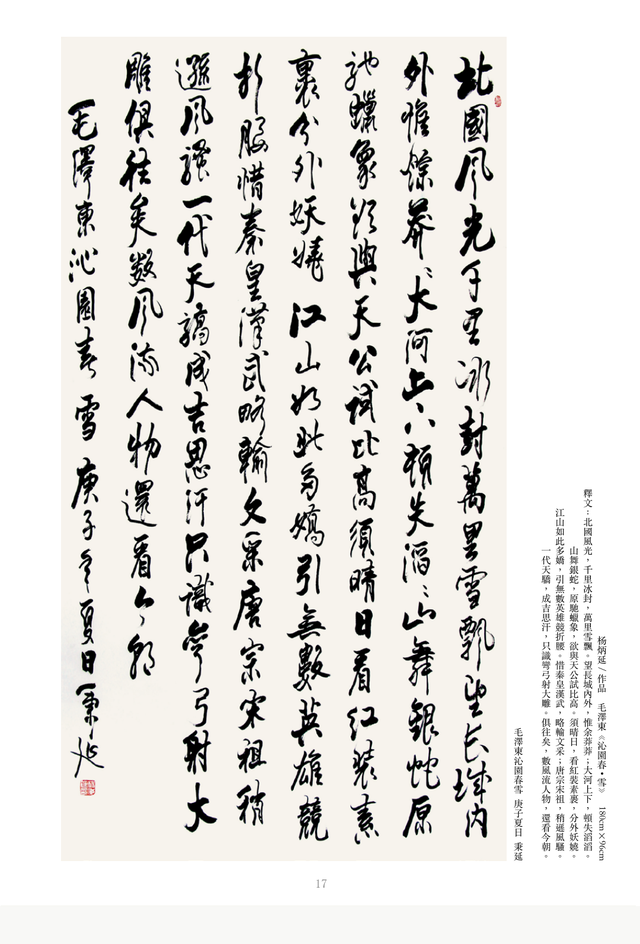 杨炳延/作品 毛澤東《沁園春·雪》 180cm×96cm
釋文：北國風光，千里冰封，萬里雪飄。望長城内外，惟余莽莽；大河上下，頓失滔滔。
山舞銀蛇，原馳蠟象，欲與天公試比高。須晴日，看紅裝素裹，分外妖嬈。
江山如此多嬌，引無數英雄競折腰。惜秦皇漢武，略輸文采；唐宗宋祖，稍遜風騷。
一代天驕，成吉思汗，只識彎弓射大雕。俱往矣，數風流人物，還看今朝。
毛澤東沁園春雪 庚子夏日 秉延
北國風光千里冰封萬里雪飄望長城内
外惟餘莽〻大河上下頓失滔〻山舞銀蛇原
馳蠟象欲與天公試比高須晴日看紅裝素
裹分外妖嬈江山如此多嬌引無數英雄競
折腰惜秦皇漢武略輸文采唐宗宋祖稍
遜風騷一代天驕成吉思汗只識彎弓射大
雕俱往矣數風流人物還看今朝
毛澤東沁園春雪庚子夏日秉延
17